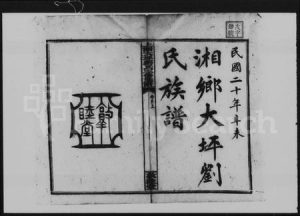 民國二十年辛未
湘鄉大坪劉
氏族譜
敦睦堂